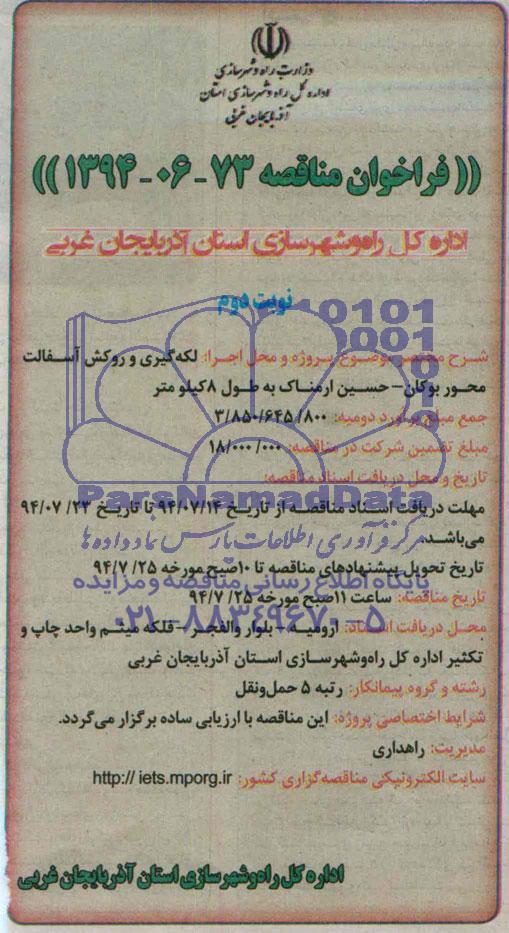 وزارت راه و شهرسازی
اداره کل راه و شهرسازی استان
آذربایجان غربی
(( فراخوان مناقصه ۷۳ - ۰۶ - ۱۳۹۴ ))
اداره کل راه‌وشهرسازی استان آذربایجان غربی
نوبت دوم
شرح مختصر موضوع پروژه و محل اجرا: لکه‌گیری و روکش آسفالت
محور بوکان– حسین ارمناک به طول ۸کیلو متر
جمع مبلغ برآورد دومیه: ۳/۸۵۰/۶۴۵/۸۰۰
مبلغ تضمین شرکت در مناقصه: ۱۸/۰۰۰/۰۰۰
تاریخ و محل دریافت اسناد مناقصه:
مهلت دریافت اسناد مناقصه از تاریخ ۹۴/۰۷/۱۴ تا تاریخ ۹۴/۰۷/۲۳
می‌باشد.
تاریخ تحویل پیشنهادهای مناقصه تا ۱۰صبح مورخه ۹۴/۷/۲۵
تاریخ مناقصه: ساعت ۱۱صبح مورخه ۹۴/۷/۲۵
محل دریافت اسناد: ارومیه – بلوار والفجر – فلکه میثم واحد چاپ و
تکثیر اداره کل راه‌وشهرسازی استان آذربایجان غربی
رشته و گروه پیمانکار: رتبه ۵ حمل‌ونقل
شرایط اختصاصی پروژه: این مناقصه با ارزیابی ساده برگزار می‌گردد.
مدیریت: راهداری
سایت الکترونیکی مناقصه‌گزاری کشور: http:// iets.mporg.ir
اداره کل راه‌وشهرسازی استان آذربایجان غربی
ParsNamadData
مرکز فرآوری اطلاعات پارس نماد داده‌ها
پایگاه اطلاع رسانی مناقصه و مزایده
۰۲۱-۸۸۳۴۹۶۷۰-۵